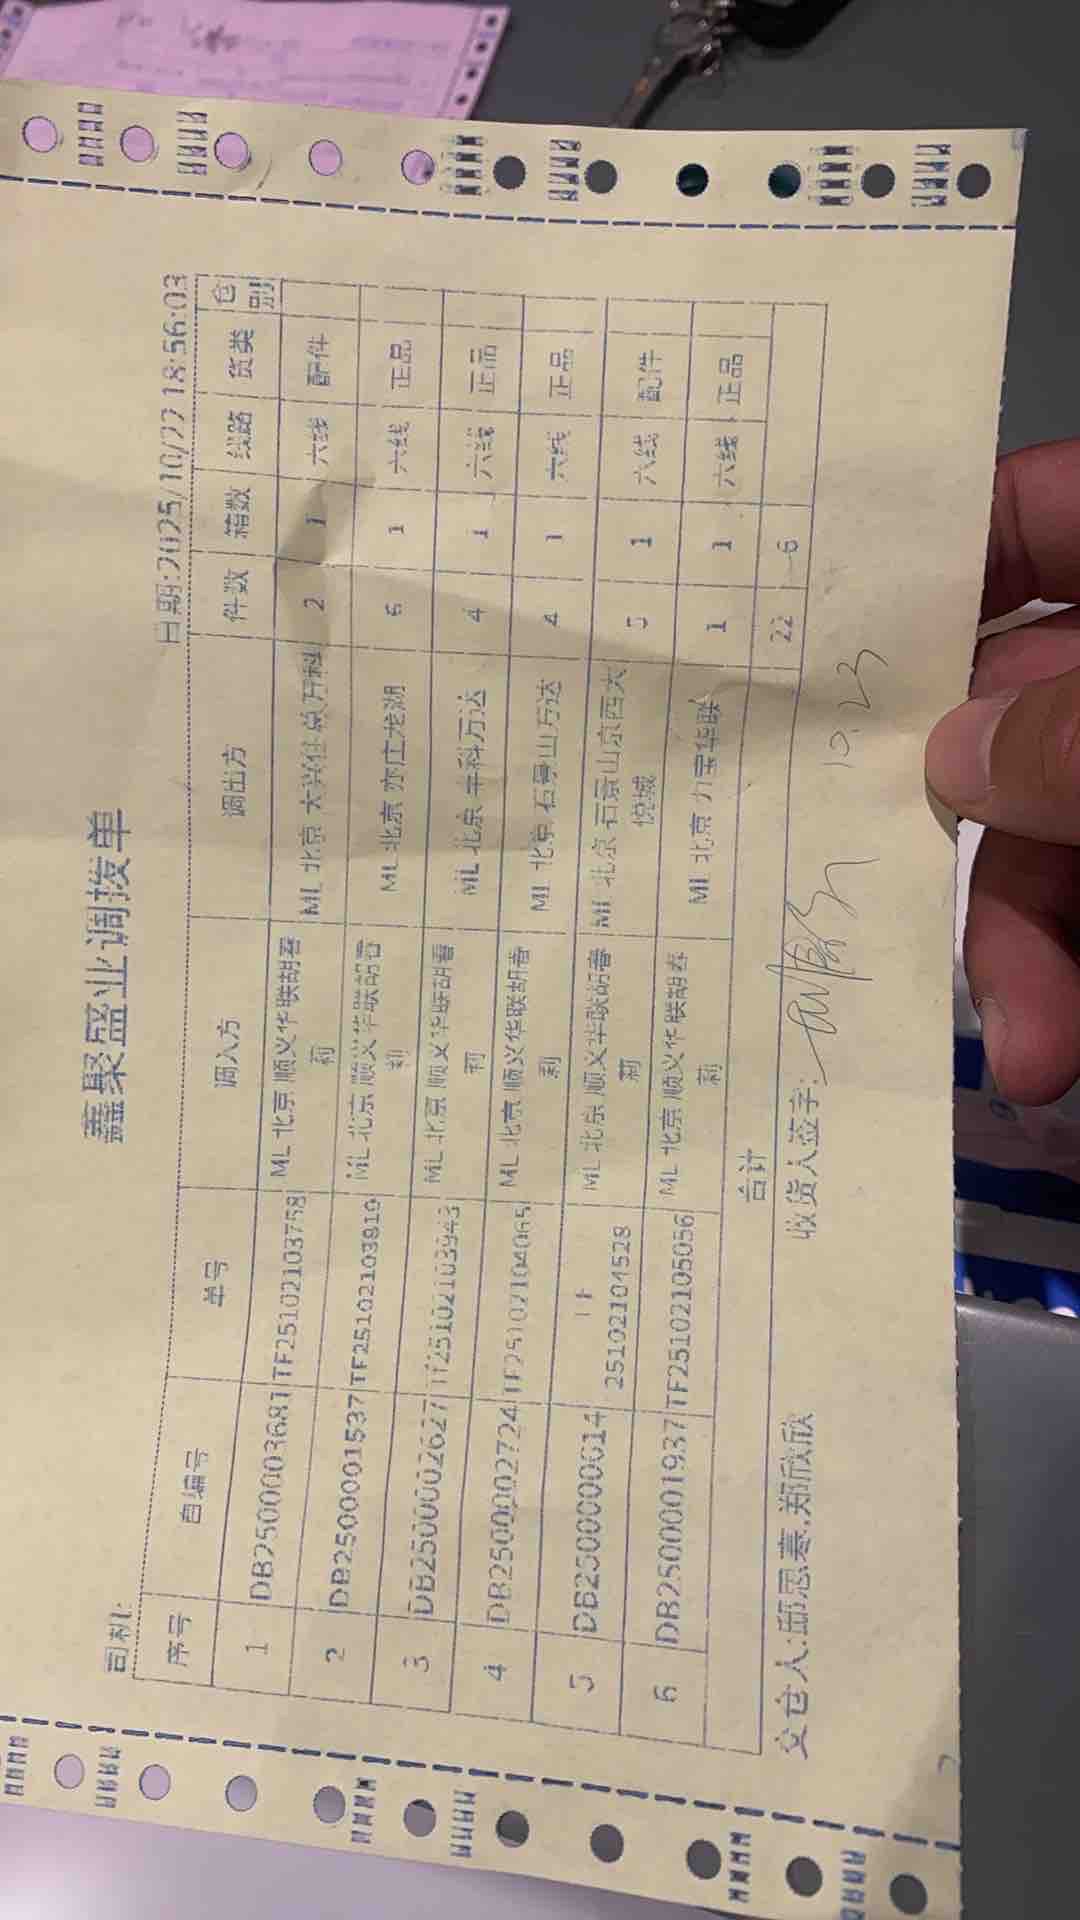 鑫聚盛业调拨单
司机: 日期:2025/10/22 18:56:03
序号 自编号 单号 调入方 调出方 件数 箱数 线路 货类 仓别
1 DB2500003681 TF25102103758 ML 北京 顺义华联胡春莉 ML 北京 大兴住总万科 2 1 六线 配件
2 DB2500001537 TF25102103819 ML 北京 顺义华联胡春莉 ML 北京 亦庄龙湖 6 1 六线 正品
3 DB2500002627 TF25102103943 ML 北京 顺义华联胡春莉 ML 北京 丰科万达 4 1 六线 正品
4 DB2500002724 TF25102104065 ML 北京 顺义华联胡春莉 ML 北京 石景山万达 4 1 六线 正品
5 DB2500000614 TF25102104528 ML 北京 顺义华联胡春莉 ML 北京 石景山京西大悦城 5 1 六线 配件
6 DB2500001937 TF25102105056 ML 北京 顺义华联胡春莉 ML 北京 力宝华联 1 1 六线 正品
合计 22 6
交仓人:邱思寒,郑欣欣 收货人签字: 10.23